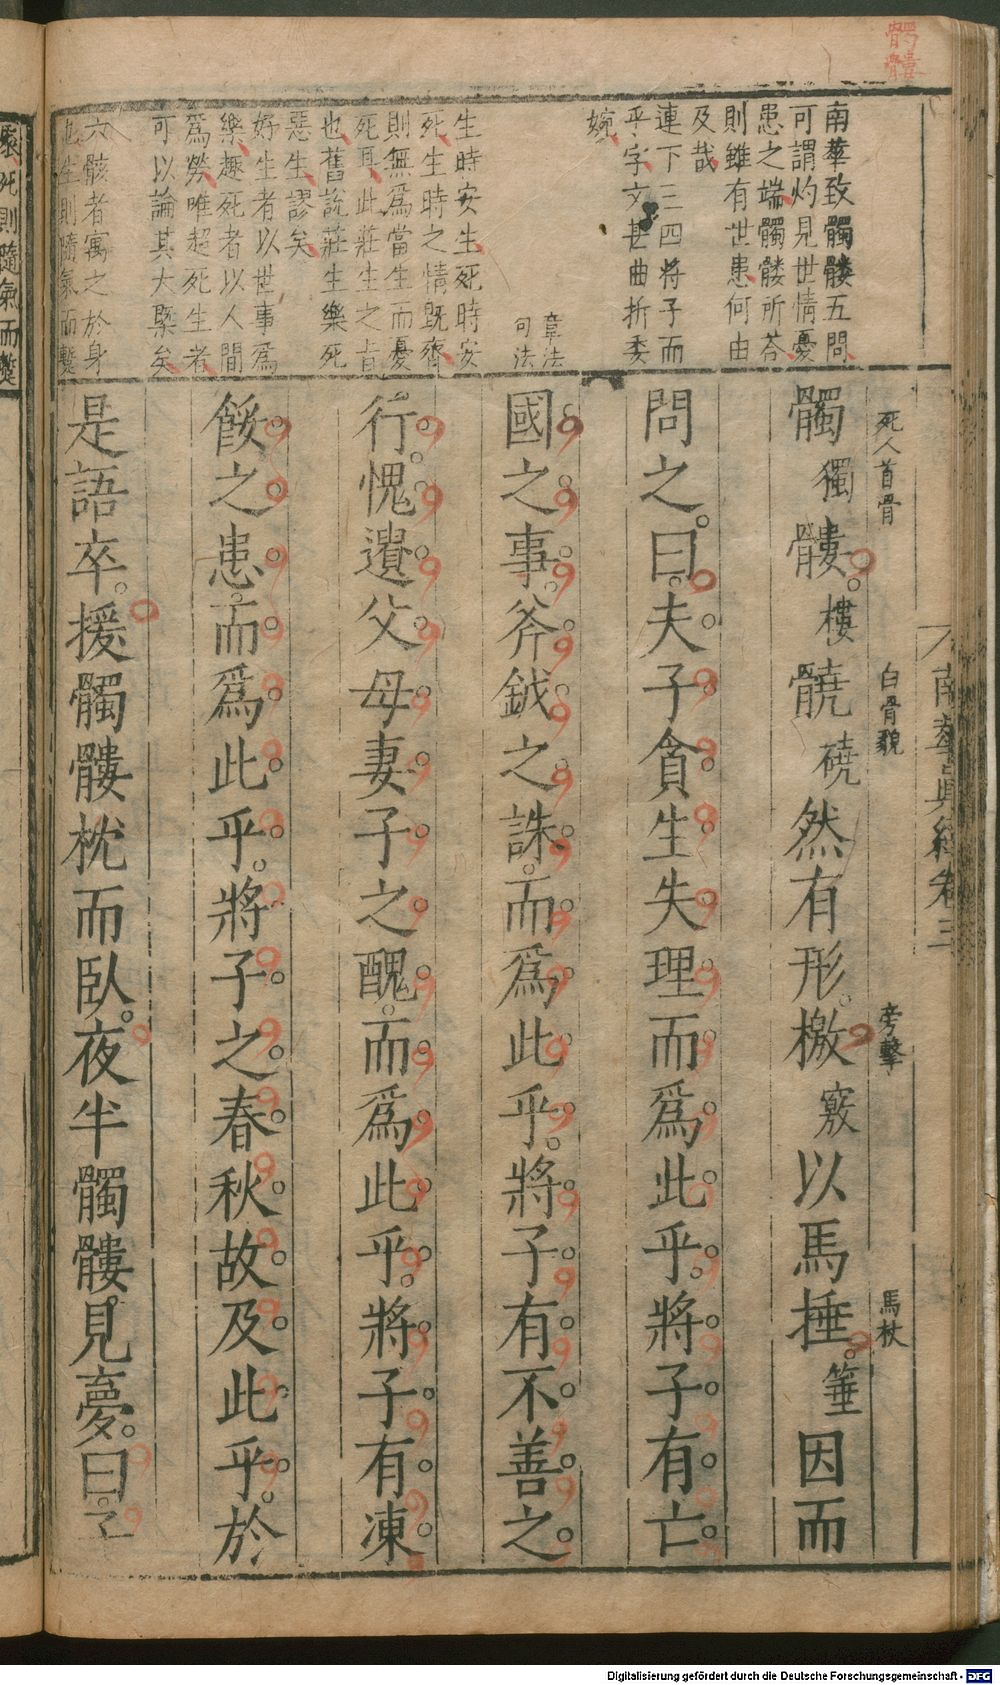 髑髏
南華致髑髏五問
可謂灼見世情憂
患之端髑髏所答
則雖有世患何由
及哉
連下三四將子而
乎字文甚曲折委
婉
章法
句法
生時安生死時安
死生時之情既齊
則無爲當生而憂
死耳此莊生之旨
也舊說莊生樂死
惡生謬矣
好生者以世事爲
樂趣死者以人間
爲勞唯超死生者
可以論其大槩矣
六骸者寓之於身
生則隨氣而
南華眞經卷三
死人首骨
白骨貌
旁擊
馬杖
髑獨髏樓髐磽然有形檄竅以馬捶箠因而
問之曰夫子貪生失理而爲此乎將子有亡
國之事斧鉞之誅而爲此乎將子有不善之
行愧遺父母妻子之醜而爲此乎將子有凍
餒之患而爲此乎將子之春秋故及此乎於
是語卒援髑髏枕而臥夜半髑髏見夢曰子
死則隨氣而
Digitalisierung gefördert durch die Deutsche Forschungsgemeinschaft - DFG